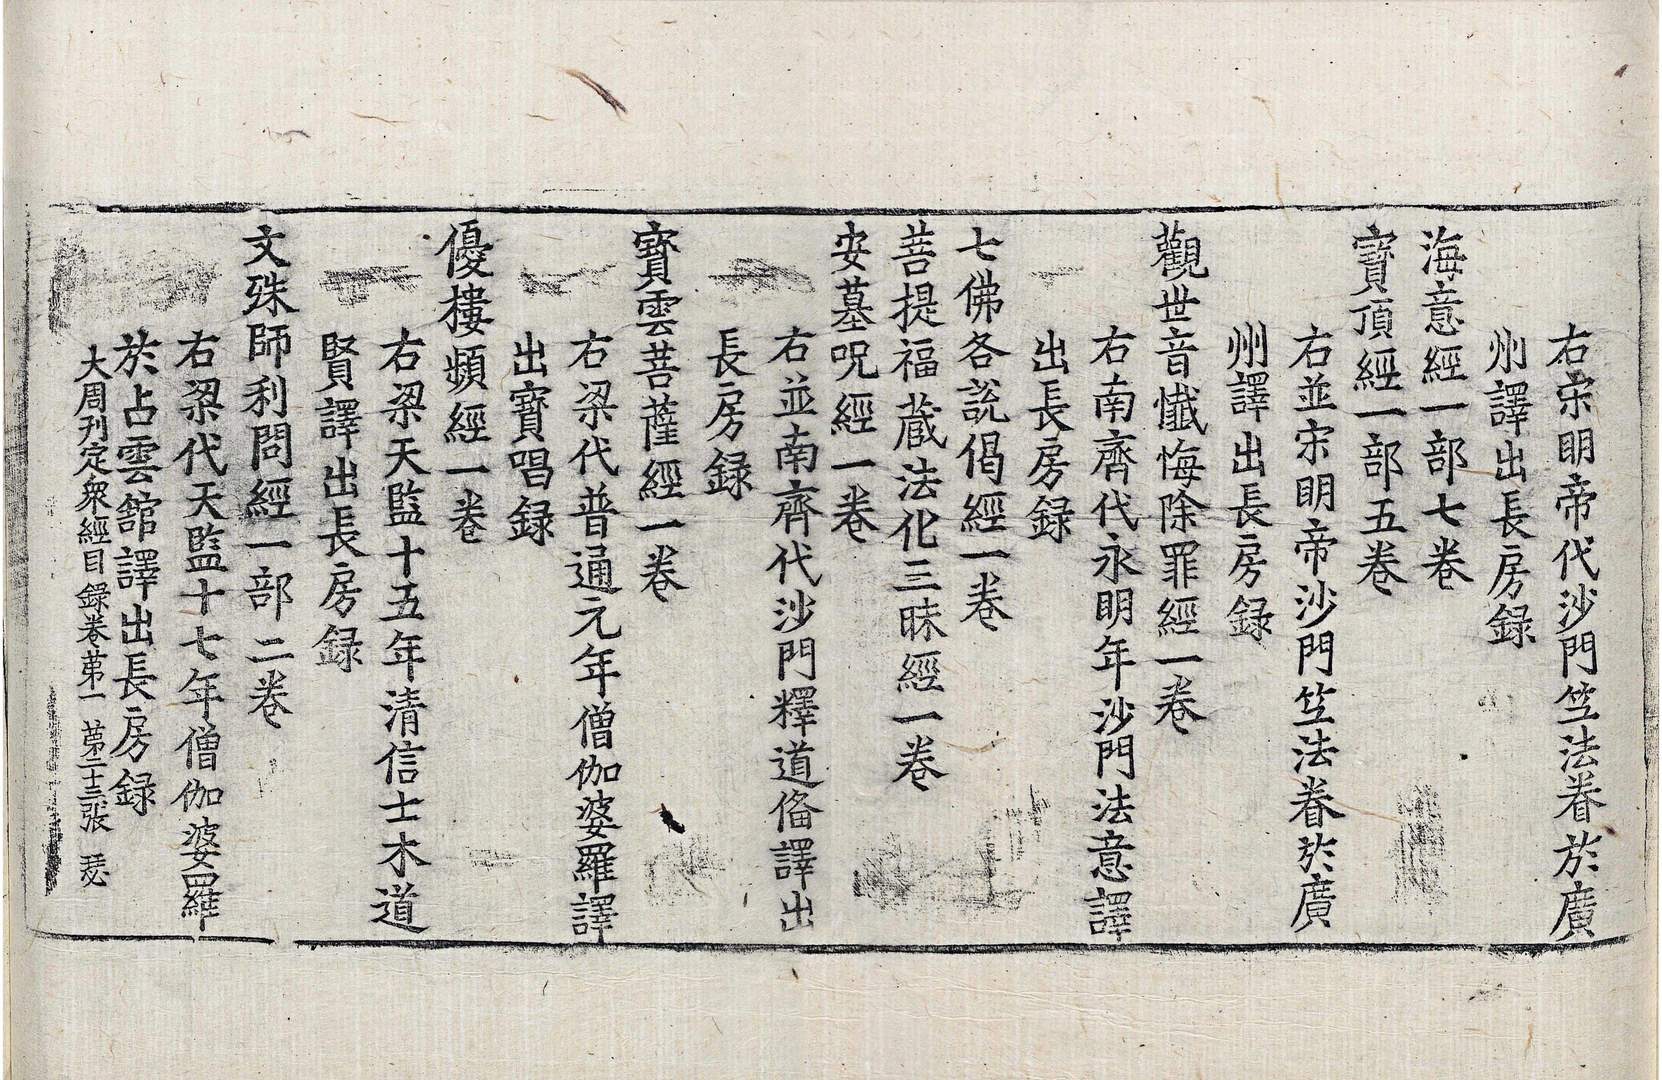 右宋明帝代沙門竺法眷於廣
州譯出長房録
海意經一部七卷
寶頂經一部五卷
右並宋明帝沙門竺法眷於廣
州譯出長房録
觀世音懺悔除罪經一卷
右南齊代永明年沙門法意譯
出長房録
七佛各說偈經一卷
菩提福藏法化三昧經一卷
安墓呪經一卷
右並南齊代沙門釋道俻譯出
長房録
寶雲菩薩經一卷
右梁代普通元年僧伽婆羅譯
出寶唱録
優樓頻經一卷
右梁天監十五年清信士木道
賢譯出長房録
文殊師利問經一部二卷
右梁代天監十七年僧伽婆羅
於占雲舘譯出長房録
大周刋定衆經目録卷苐一 苐二十三張 瑟